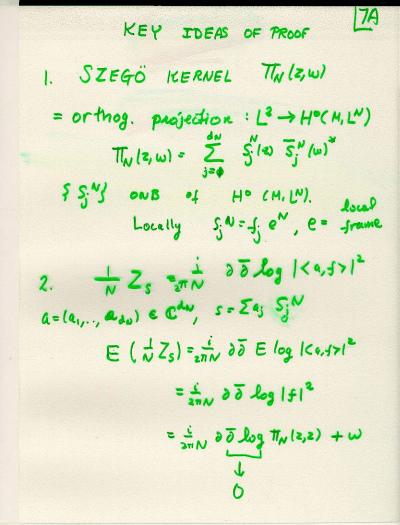 7A
KEY IDEAS OF PROOF
1. SZEGÖ KERNEL Π_N(z,w)
= orthog. projection : L² → H⁰(M, L^N)
Π_N(z,w) = Σ_{j=0}^{d_N} S_j^N(z) S̄_j^N(w)*
{S_j^N} ONB of H⁰(M, L^N).
Locally S_j^N = f_j e^N, e = local frame
2. 1/N Z_s = i/2πN ∂∂̄ log |<a,f>|²
a = (a_1,.., a_{d_N}) ∈ ℂ^{d_N}, s = Σ a_j S_j^N
E (1/N Z_s) = i/2πN ∂∂̄ E log |<a,f>|²
= i/2πN ∂∂̄ log |f|²
= i/2πN ∂∂̄ log Π_N(z,z) + ω
↓
0